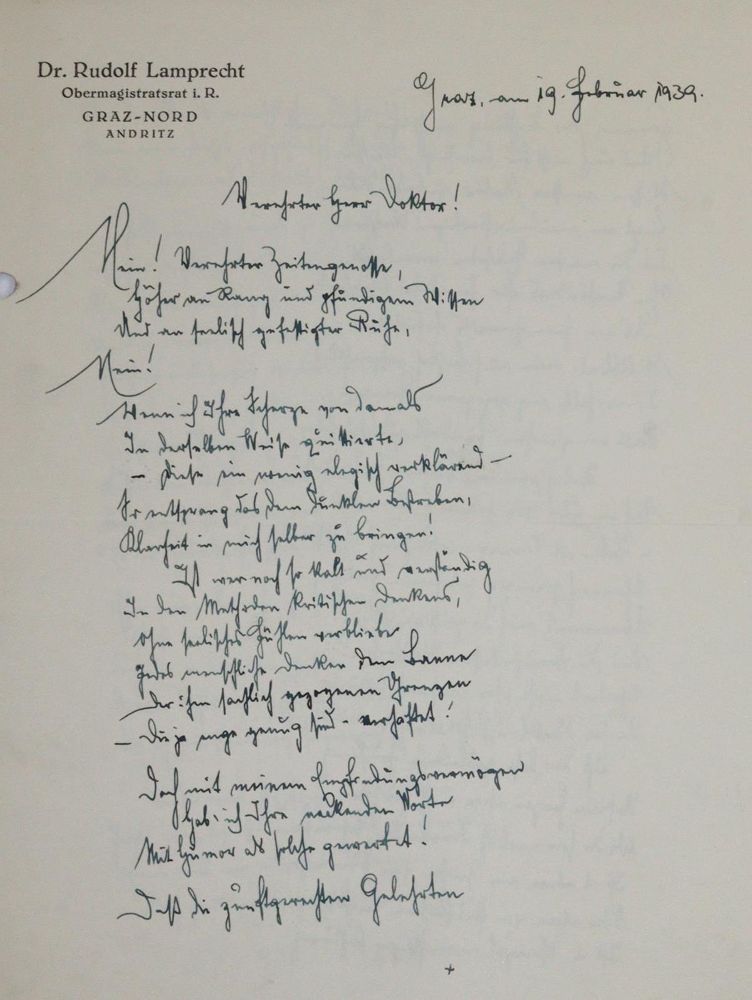 Dr. Rudolf Lamprecht
Obermagistratsrat i. R.
GRAZ-NORD
ANDRITZ
Graz, am 19. Februar 1939.
Verehrter Herr Doktor!
Nein! Verehrter Zeitengenosse,
Höher an Rang und pfündigem Wissen
Und an seelisch gefestigter Ruhe,
Nein!
Wenn ich Ihre Scherze von damals
In derselben Weise quittierte,
– Diese ein wenig elegisch verklärend –
So entsprang das dem dunklen Bestreben,
Klarheit in mich selber zu bringen!
Ist wer noch so kalt und verständig
In den Methoden kritischen Denkens,
Ohne seelisches Fühlen verbliebe
Jedes menschliche Denken dem Banne
Der ihm sachlich gezogenen Grenzen
– Die ja enge genug sind – verhaftet!
Doch mit meinem Empfindungsvermögen
Hab' ich Ihre neckenden Worte
Mit Humor als solche gewertet!
Daß die zunftgerechten Gelehrten
+